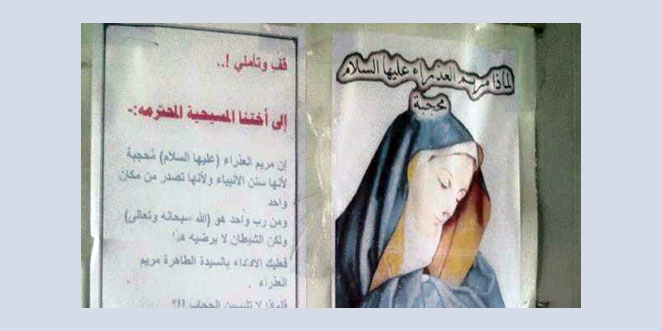 قف وتأملي !..
إلى أختنا المسيحية المحترمه:-
إن مريم العذراء (عليها السلام) مُحجبة
لأنها سنن الأنبياء ولأنها تصدر من مكان
واحد
ومن رب واحد هو (الله سبحانه وتعالى)
ولكن الشيطان لا يرضيه هذا
فعليك الاقتداء بالسيدة الطاهرة مريم
العذراء
فلماذا لا تلبسين الحجاب !!؟
لماذا مريم العذراء عليها السلام
محجبة